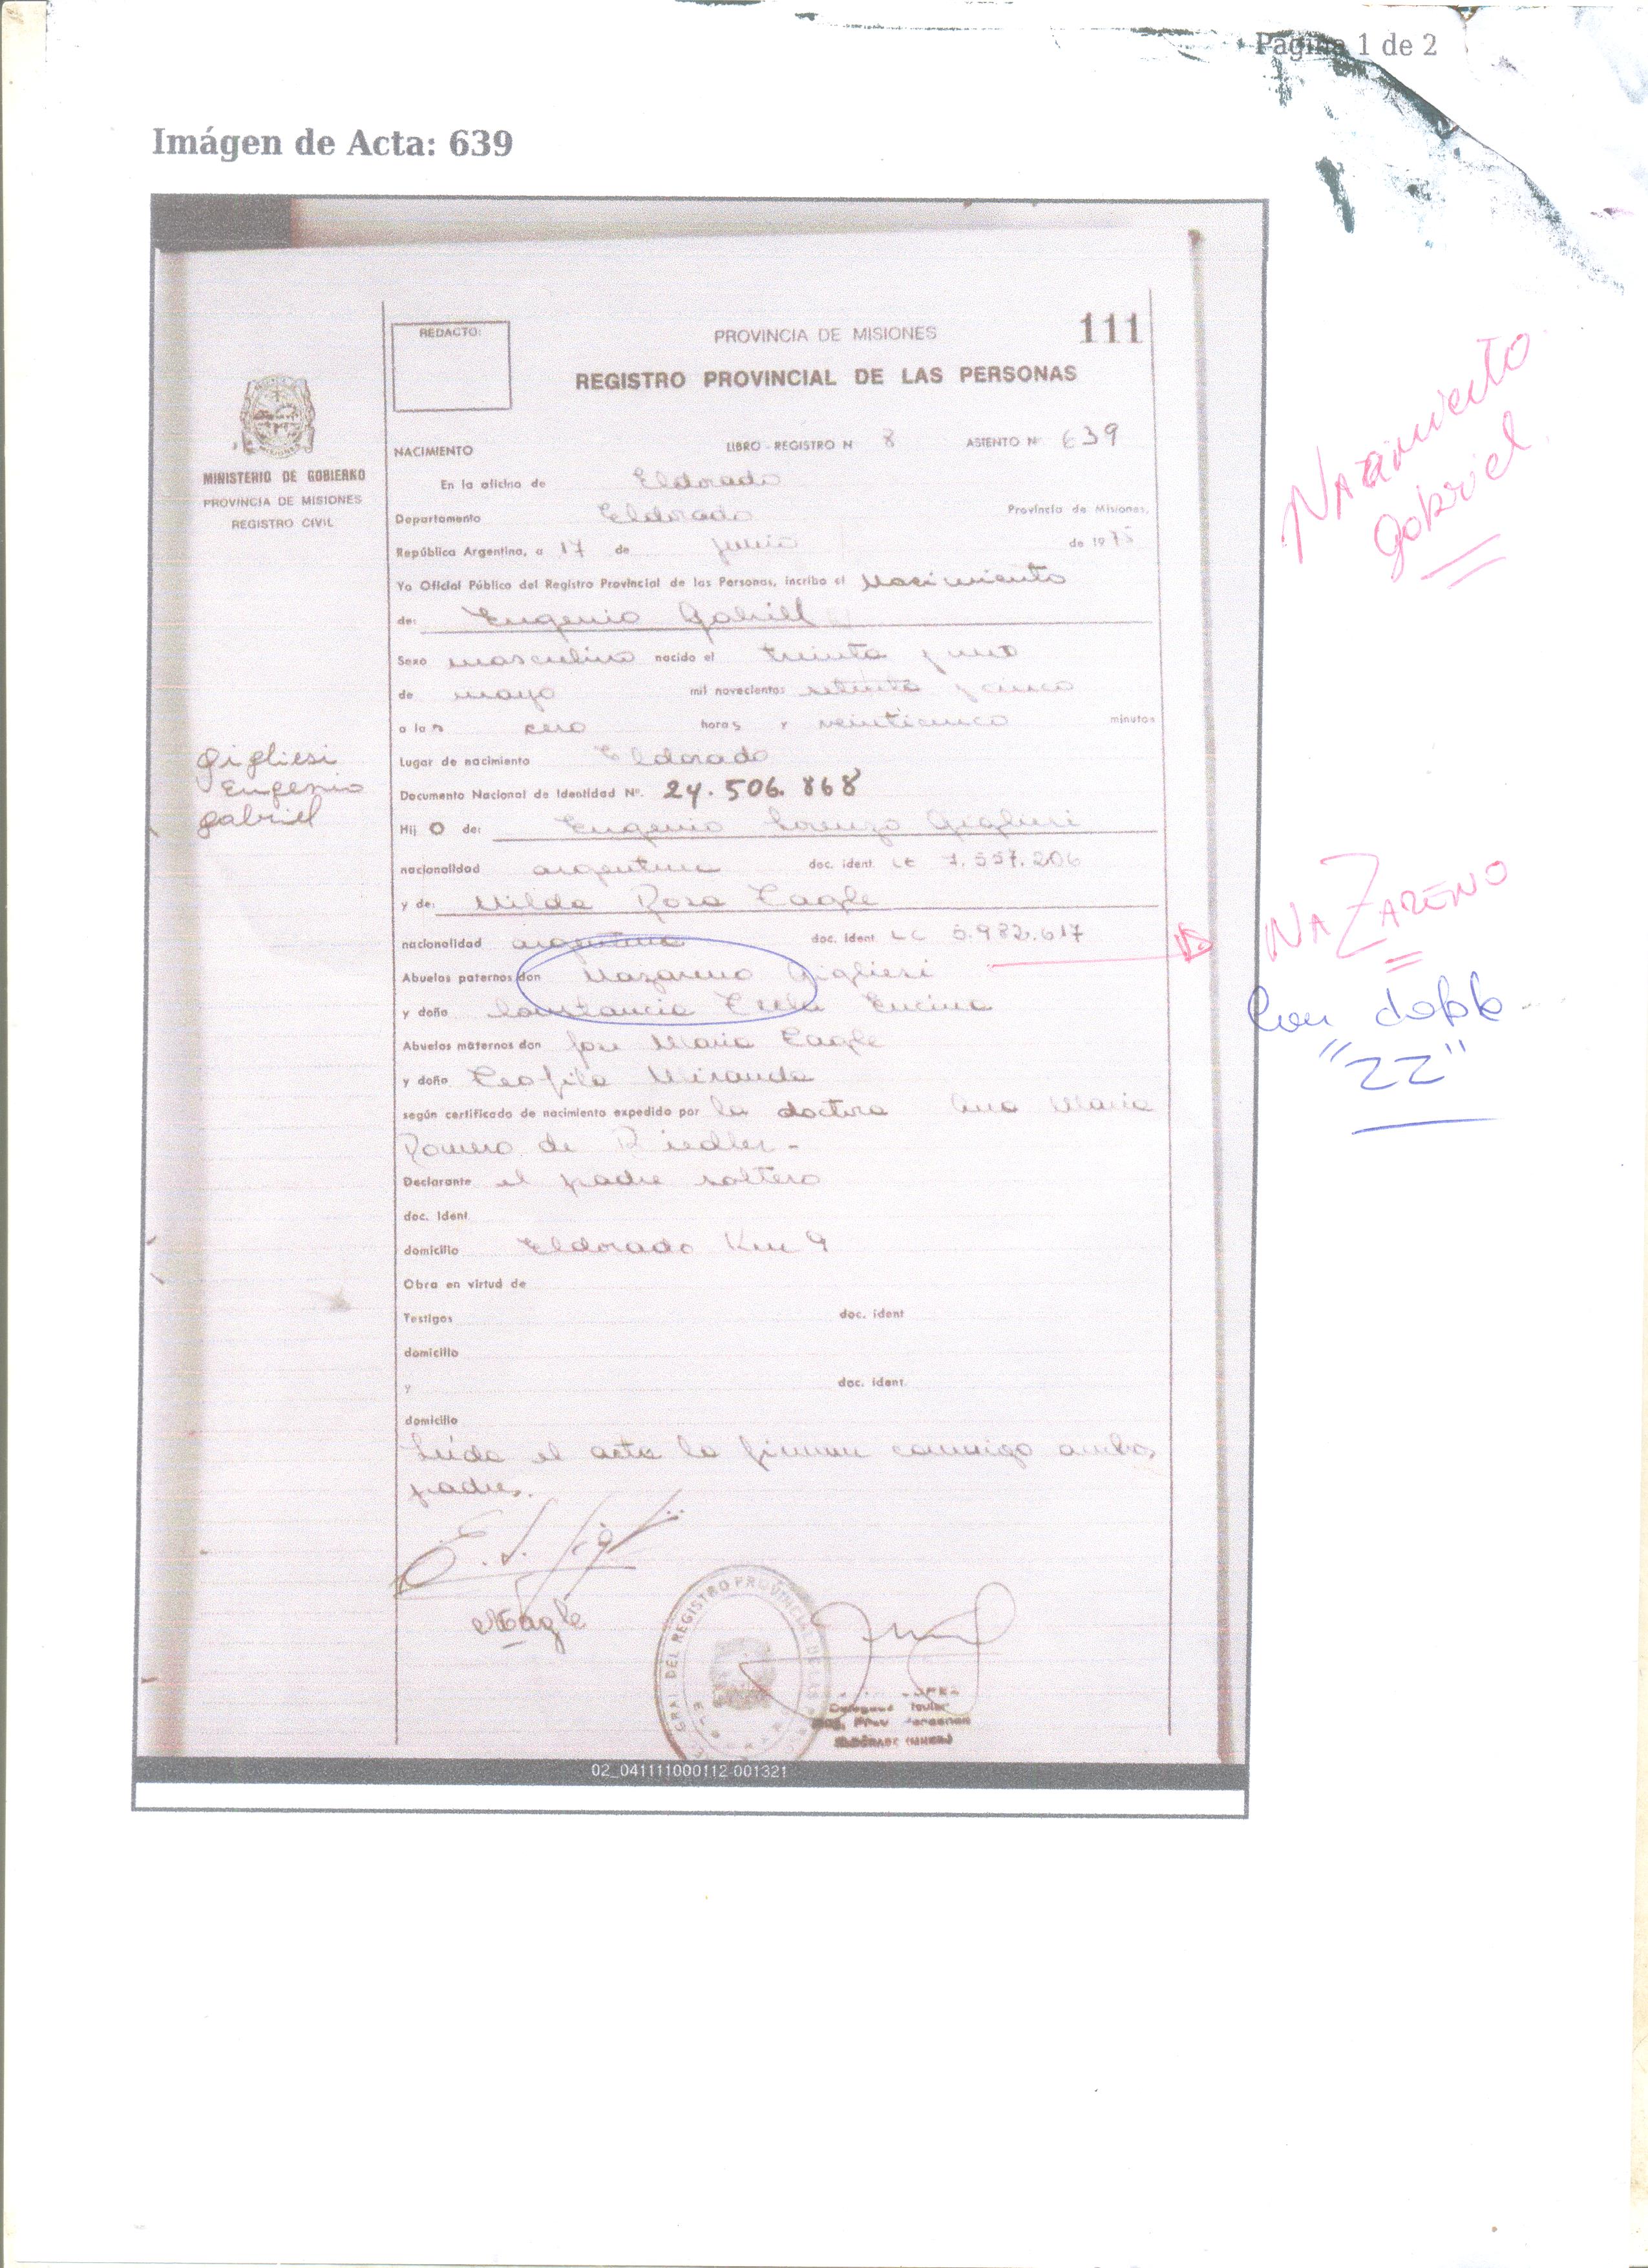 Página 1 de 2
Imágen de Acta: 639
REDACTO:
PROVINCIA DE MISIONES
111
REGISTRO PROVINCIAL DE LAS PERSONAS
MINISTERIO DE GOBIERNO
PROVINCIA DE MISIONES
REGISTRO CIVIL
NACIMIENTO LIBRO - REGISTRO N 8 ASIENTO Nº 639
En la oficina de Eldorado
Departamento Eldorado Provincia de Misiones,
República Argentina, a 17 de junio de 1975
Yo Oficial Público del Registro Provincial de las Personas, incribo el Nacimiento
de: Eugenio Gabriel
Sexo masculino nacido el treinta y uno
de mayo mil novecientos setenta y cinco
a las cero horas y veinticinco minutos
Lugar de nacimiento Eldorado
Documento Nacional de Identidad Nº. 24.506.868
Hij o de: Eugenio Lorenzo Gigliesi
nacionalidad argentina doc. ident. LE 7.557.206
y de: Nilda Rosa Eagle
nacionalidad argentina doc. ident LC 5.982.617
Abuelos paternos don Nazareno Gigliesi
y doña Constancia Encina
Abuelos maternos don Jose Maria Eagle
y doña Teofila Miranda
según certificado de nacimiento expedido por la doctora Ana Maria
Romero de Riedler -
Declarante el padre soltero
doc. ident
domicilio Eldorado Km 9
Obra en virtud de
Testigos doc. ident
domicilio
y doc. ident.
domicilio
Leída el acta la firman conmigo ambos
padres.
Gigliesi
Eugenio
Gabriel
NEagle
DEL REGISTRO PROVINCIAL DE LAS
LOPEZ
02_041111000112-001321
Nacimiento
Gabriel
NAZARENO
Con doble
"ZZ"